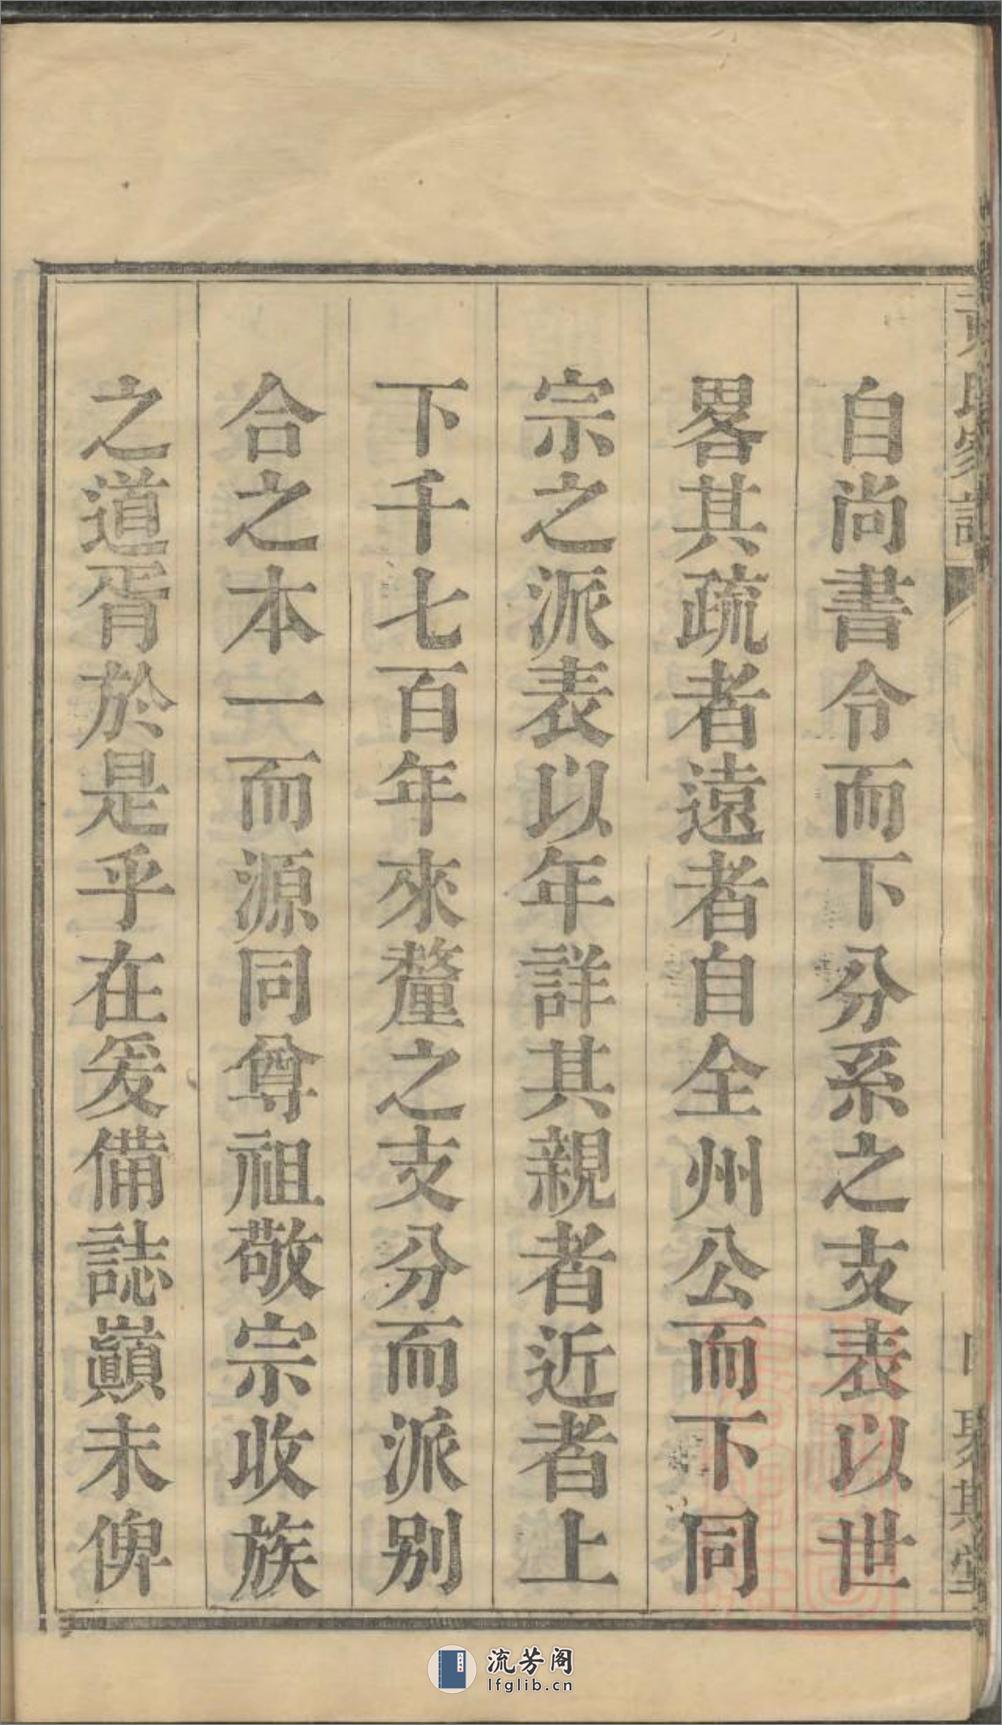 自尚書令而下分系之支表以世
畧其疏者遠者自全州公而下同
宗之派表以年詳其親者近者上
下千七百年來釐之支分而派别
合之本一而源同尊祖敬宗收族
之道胥於是乎在爰備誌巔末俾
流芳阁
lfglib.cn